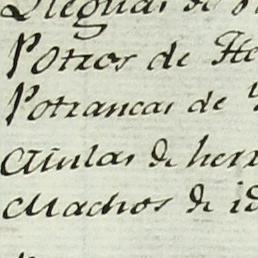 Yeguas de
Potros de He
Potrancas de
Mulas de herr
Machos de id